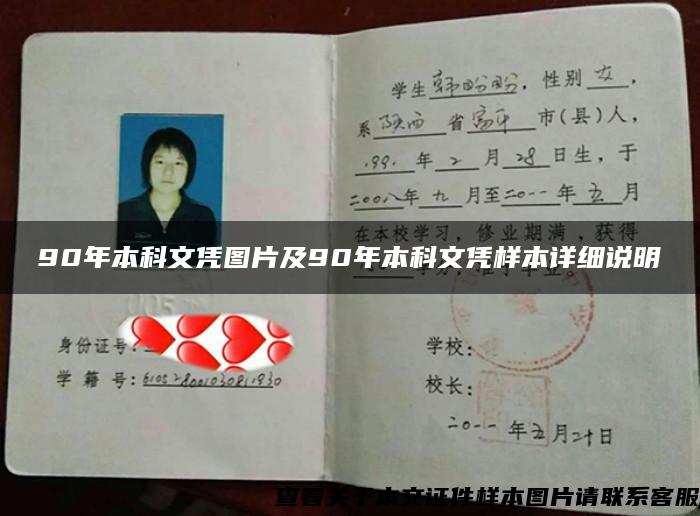 学生韩盼盼，性别女，
系陕西省富平市(县)人，
1991年2月28日生，于
二00八年九月至二0一一年五月
在本校学习，修业期满，获得
90年本科文凭图片及90年本科文凭样本详细说明
身份证号:
学籍号:
学校:
校长:
二0一一年五月二十日
查看关于本文证件样本图片请联系客服